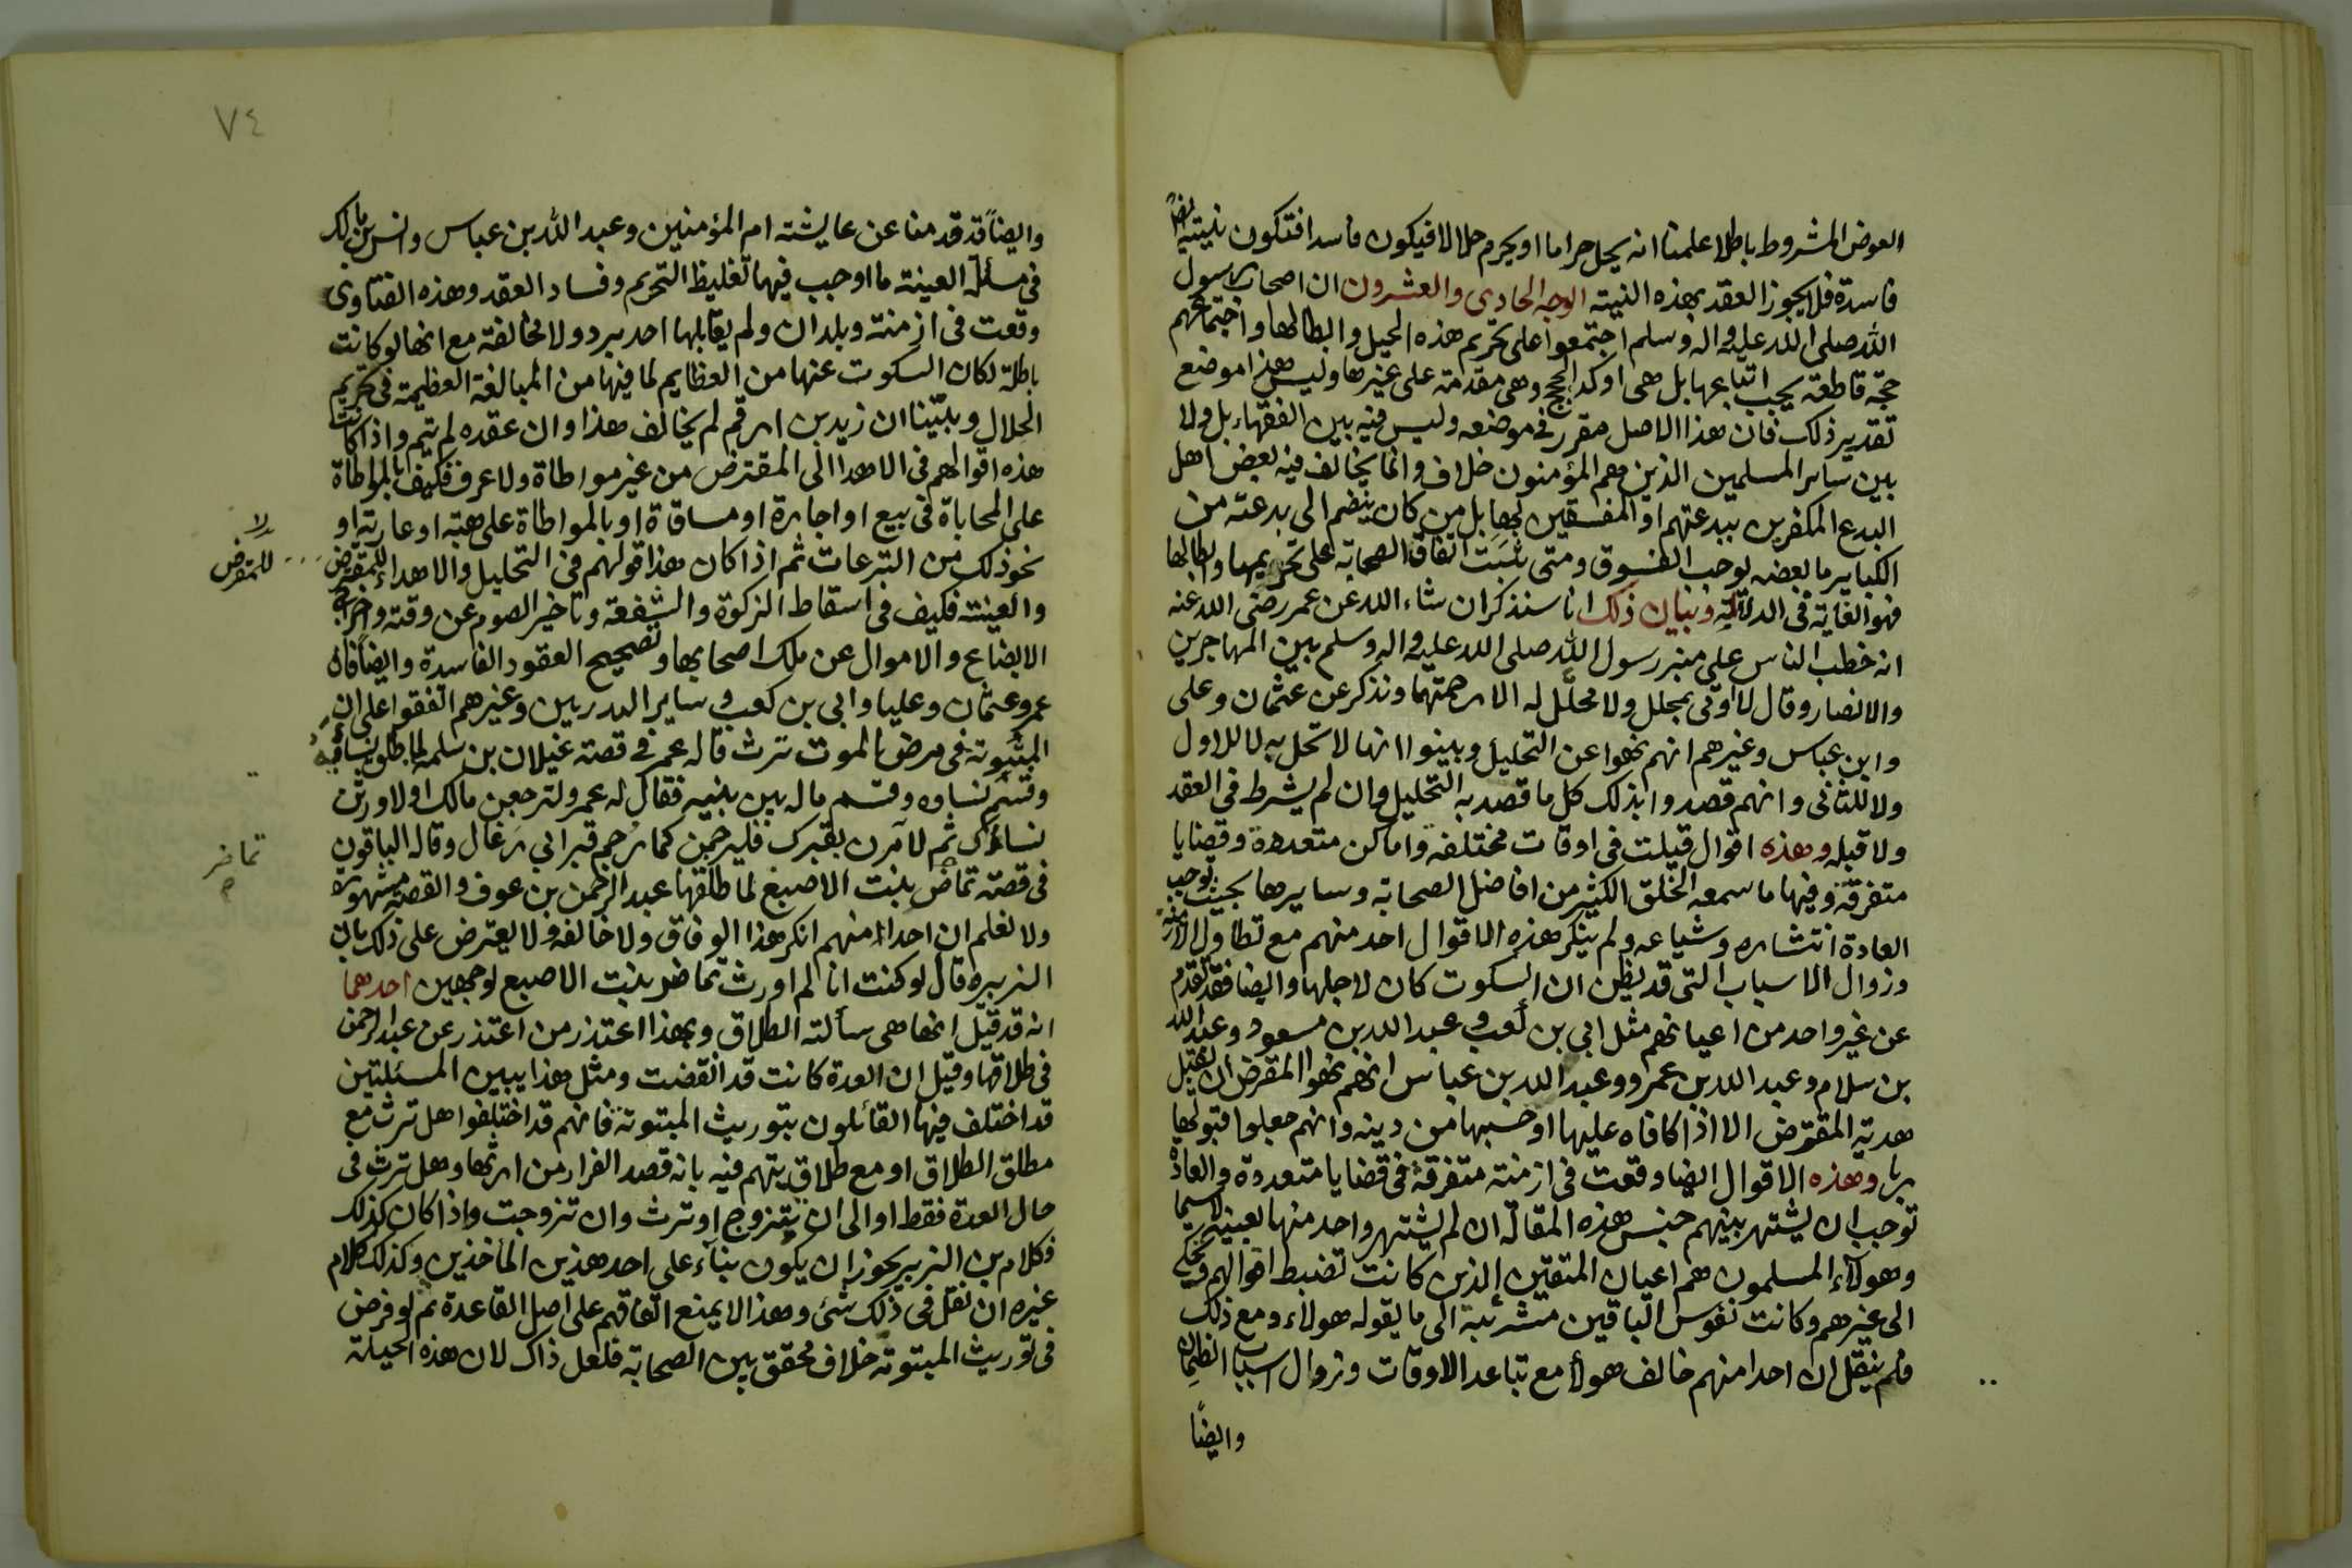 العوض المشروط باطلا علمنا انه يحل حراما او يحرم حلالا فيكون فاسدا فتكون نيته ايضا
فاسدة فلا يجوز العقد بهذه النية الوجه الحادي والعشرون ان اصحاب رسول
الله صلى الله عليه واله وسلم اجتمعوا على تحريم هذه الحيل وابطالها واجتماعهم
حجة قاطعة يجب اتباعها بل هي اوكد الحجج وهي مقدمة على غيرها وليس هذا موضع
تقدير ذلك فان هذا الاصل مقرر في موضعه وليس فيه بين الفقهاء بل ولا
بين ساير المسلمين الذين هم المؤمنون خلاف وانما يخالف فيه بعض اهل
البدع المكفرين ببدعتهم او المفسقين بها بل من كان ينضم الى بدعته من
الكباير ما بعضه يوجب الفسوق ومتى ثبت اتفاق الصحابة على تحريمها وابطالها
فهو الغاية في الدلالة وبيان ذلك انا سنذكر ان شاء الله عن عمر رضي الله عنه
انه خطب الناس على منبر رسول الله صلى الله عليه واله وسلم بين المهاجرين
والانصار وقال لا اوتى بمحلل ولا محلل له الا رجمتهما ونذكر عن عثمان وعلى
وابن عباس وغيرهم انهم نهوا عن التحليل وبينوا انها لا تحل به لا للاول
ولا للثاني وانهم قصدوا بذلك كل ما قصد به التحليل وان لم يشرط في العقد
ولا قبله وهذه اقوال قيلت في اوقات مختلفة واماكن متعددة وقضايا
متفرقة وفيها ما سمعه الخلق الكثير من افاضل الصحابة وسايرها بحيث توجب
العادة انتشاره وشياعه ولم ينكر هذه الاقوال احد منهم مع تطاول الازمنة
وزوال الاسباب التي قد يظن ان السكوت كان لاجلها وايضا فقد تقدم
عن غير واحد من اعيانهم مثل ابي بن كعب وعبد الله بن مسعود وعبد الله
بن سلام وعبد الله بن عمر وعبد الله بن عباس انهم نهوا المقرض ان يقبل
هدية المقترض الا اذا كافاه عليها او حسبها من دينه وانهم جعلوا قبولها
ربا وهذه الاقوال ايضا وقعت في ازمنة متفرقة في قضايا متعددة والعادة
توجب ان يشتهر بينهم جنس هذه المقالة ان لم يشتهر واحد منها بعينه لاسيما
وهولاء المسلمون هم اعيان المتقين الذين كانت تضبط اقوالهم وتحكى
الى غيرهم وكانت نفوس الباقين مشرئبة الى ما يقوله هولاء ومع ذلك
فلم ينقل ان احدا منهم خالف هولاء مع تباعد الاوقات وزوال اسباب
وايضًا
٧٤
وايضًا قد قدمنا عن عايشة ام المؤمنين وعبد الله بن عباس وانس بن مالك
في مسألة العينة ما اوجب فيها تغليظ التحريم وفساد العقد وهذه الفتاوى
وقعت في ازمنة وبلدان ولم يقابلها احد برد ولا مخالفة مع انها لو كانت
باطلة لكان السكوت عنها من العظايم لما فيها من المبالغة العظيمة في تحريم
الحلال وبيّنا ان زيد بن ارقم لم يخالف هذا وان عقده لم يتم واذا كانت
هذه اقوالهم في الاهدا الى المقترض من غير مواطاة ولا عرف فكيف بالمواطاة
على المحاباة في بيع او اجارة او مساقاة او بالمواطاة على هبة او عارية او
نحو ذلك من التبرعات ثم اذا كان هذا قولهم في التحليل والاهداء للمقترض
للمقرض
والعينة فكيف في اسقاط الزكوة والشفعة وتاخير الصوم عن وقته واخراج
الابضاع والاموال عن ملك اصحابها وتصحيح العقود الفاسدة وايضًا فان
عمر وعثمان وعليا وابي بن كعب وساير البدريين وغيرهم اتفقوا على ان
المبتوتة في مرض الموت ترث قاله عمر في قصة غيلان بن سلمة لما طلق نساءه
وقسم نساوه وقسم ماله بين بنيه فقال له عمر ولترجعن مالك او لاورثن
نساءك ثم لآمرن بقبرك فليرجمن كما رجم قبر ابي رغال وقاله الباقون
تماضر
في قصة تماضر بنت الاصبغ لما طلقها عبد الرحمن بن عوف والقصة مشهورة
ولا نعلم ان احدا منهم انكر هذا الوفاق ولا خالفه ولا يعترض على ذلك بان
الزبيره قال لو كنت انا لم اورث تماضر بنت الاصبع لوجهين احدهما
انه قد قيل انها هي سألته الطلاق وبهذا اعتذر من اعتذر عن عبد الرحمن
في طلاقها وقيل ان العدة كانت قد انقضت ومثل هذا يبين المسئلتين
قد اختلف فيها القائلون بتوريث المبتوتة فانهم قد اختلفوا هل ترث مع
مطلق الطلاق او مع طلاق يتهم فيه بانه قصد الفرار من ارثها وهل ترث في
حال العدة فقط او الى ان تتزوج او ترث وان تزوجت واذا كان كذلك
فكلام بن الزبير يجوز ان يكون بناء على احد هذين الماخذين وكذلك كلام
غيره ان نقل في ذلك شئ وهذا لا يمنع اتفاقهم على اصل القاعدة ثم لو فرض
في توريث المبتوتة خلاف محقق بين الصحابة فلعل ذاك لان هذه الحيلة